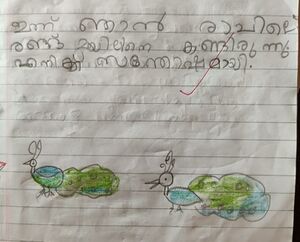 ഇന്ന് ഞാൻ രാവിലെ
രണ്ട് മയിലിനെ കണ്ടിരുന്നു
എനിക്ക് സന്തോഷമായി.